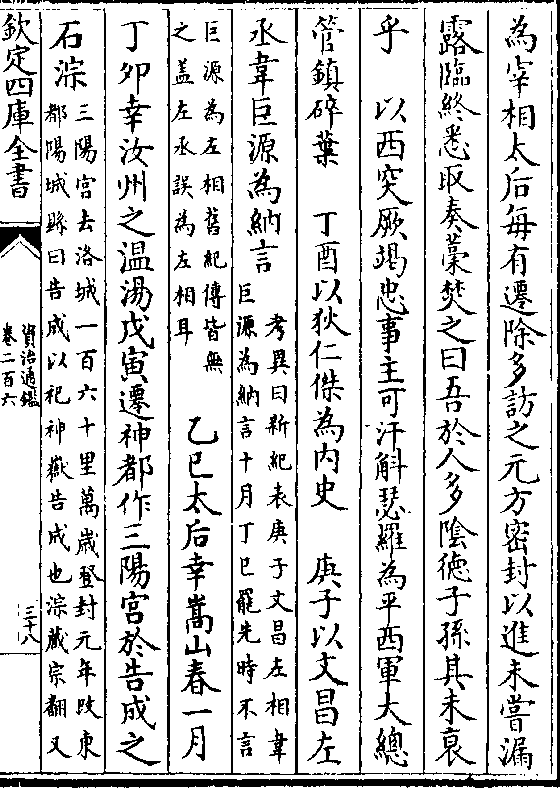 為宰相太后每有遷除多訪之元方密封以進未嘗漏
露臨終悉取奏藁焚之曰吾於人多隂德子孫其未衰
乎　以西突厥竭忠事主可汗斛瑟羅為平西軍大總
管鎮碎葉　丁酉以狄仁傑為内史　庚子以文昌左
丞韋巨源為納言
考異曰新紀表庚子文昌左相韋
巨源為納言十月丁巳罷先時不言
巨源為左相舊紀傳皆無
之蓋左丞誤為左相耳
乙巳太后幸嵩山春一月
丁卯幸汝州之温湯戊寅還神都作三陽宫於告成之
石淙
三陽宫去洛城一百六十里萬歲登封元年改東
都陽城縣曰告成以祀神嶽告成也淙藏宗翻又
欽定四庫全書
資治通鑑
卷二百六
三十八